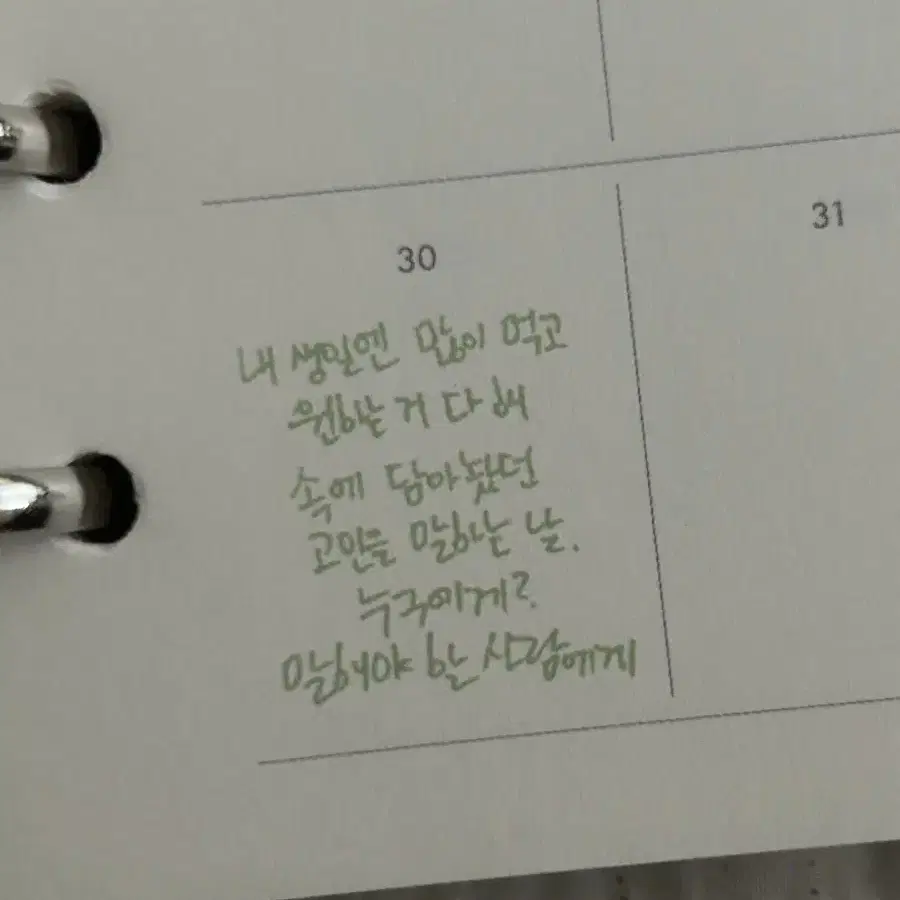 30
31
내 생일엔 많이 먹고
원하는 거 다 해
속에 담아놨던
고민을 말하는 날.
누구에게?
말해야 할 사람에게